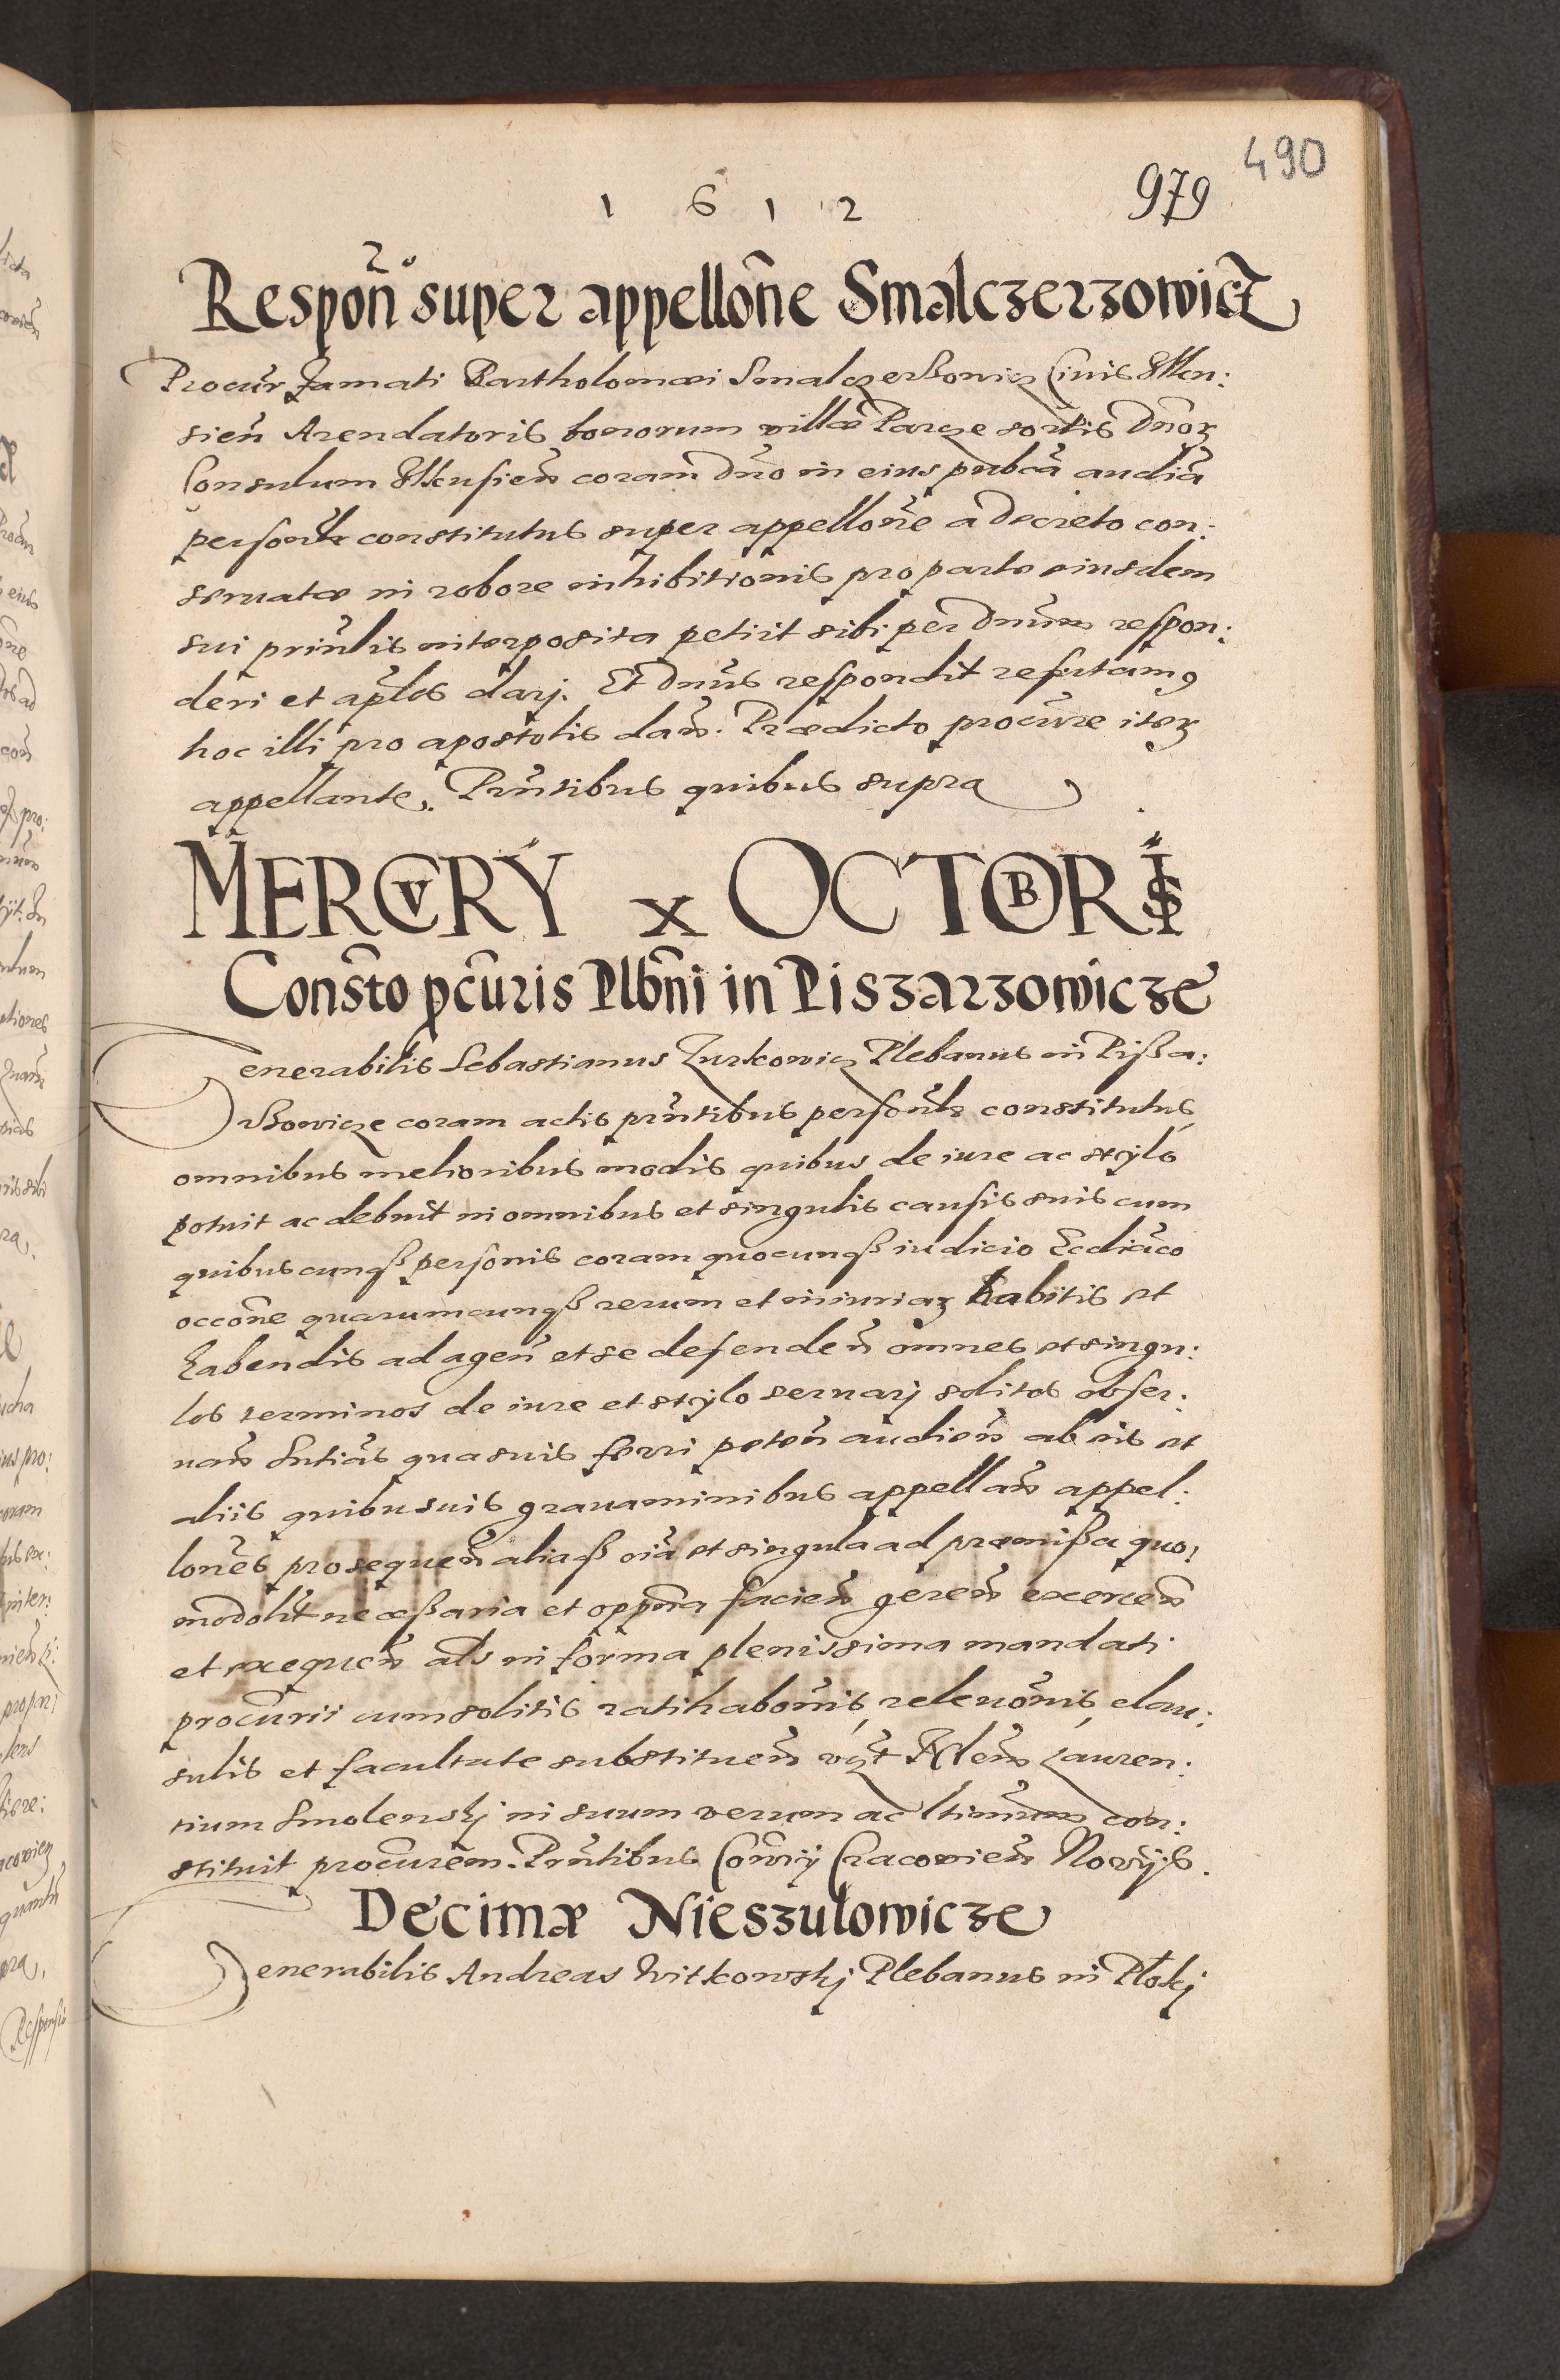 490
1612
979
Respoñ super appellõne Smalczerzowicz
Procur̃ famati Bartholomæi Smalczerßowicz Ciuis Ilku:
sieñ Arendatoris bonorum villæ Parcze sortis Dñoꝝ
Consulum Ilkusieñ coram Dño in eius pubcã audiã
personlr̃ constitutus super appellõne a decreto con:
seruatæ in robore inhibitionis pro parte eiusdem
sui prinlis interposita petiit sibi per Dnum respon:
deri et aplos̃ darj. Et Dñus respondit refutamꝯ
hoc illi pro apostolis dañ. Prædicto procure iteꝝ
appellante. Prñtibus quibus supra
MERCVRY X OCTOBRIS
Consto pcuris Plbni in Piszarzowicze
Venerabilis Sebastianus Zurkowicz Plebanus in Pißa:
rßowicze coram actis prñtibus personlr̃ constitutus
omnibus melioribus modis quibus de iure ac stylo
potuit ac debuit in omnibus et singulis causis suis cum
quibuscunqß personis coram quocunqß iudicio Ecclicõ
occõne quarumcunqß rerum et iniuriaꝝ habitis et
habendis ad ageñ et se defendeñ omnes et singu:
los terminos de iure et stylo seruarj solitos obser:
uañ Sntiãs quasuis ferri peteñ audieñ ab eis et
aliis quibusuis grauaminibus appellañ appel:
lonẽs prosequeñ aliaß oiã et singula ad præmißa quo:
modolt̃ necæßaria et oppñа facieñ gereñ exerceñ
et exequeñ als in forma plenissima mandati
procurii cum solitis ratihabõnis, releuõnis, clau:
sulis et facultate substitueñ vzt̃ Rdem Lauren:
tium Smolenskj in suum verum ac ltimum con:
stituit procurem. Prñtibus Conrij Cracouieñ Notrijs.
Decimæ Nieszulowicze
Venerabilis Andreas Witkowskj Plebanus in Płokj